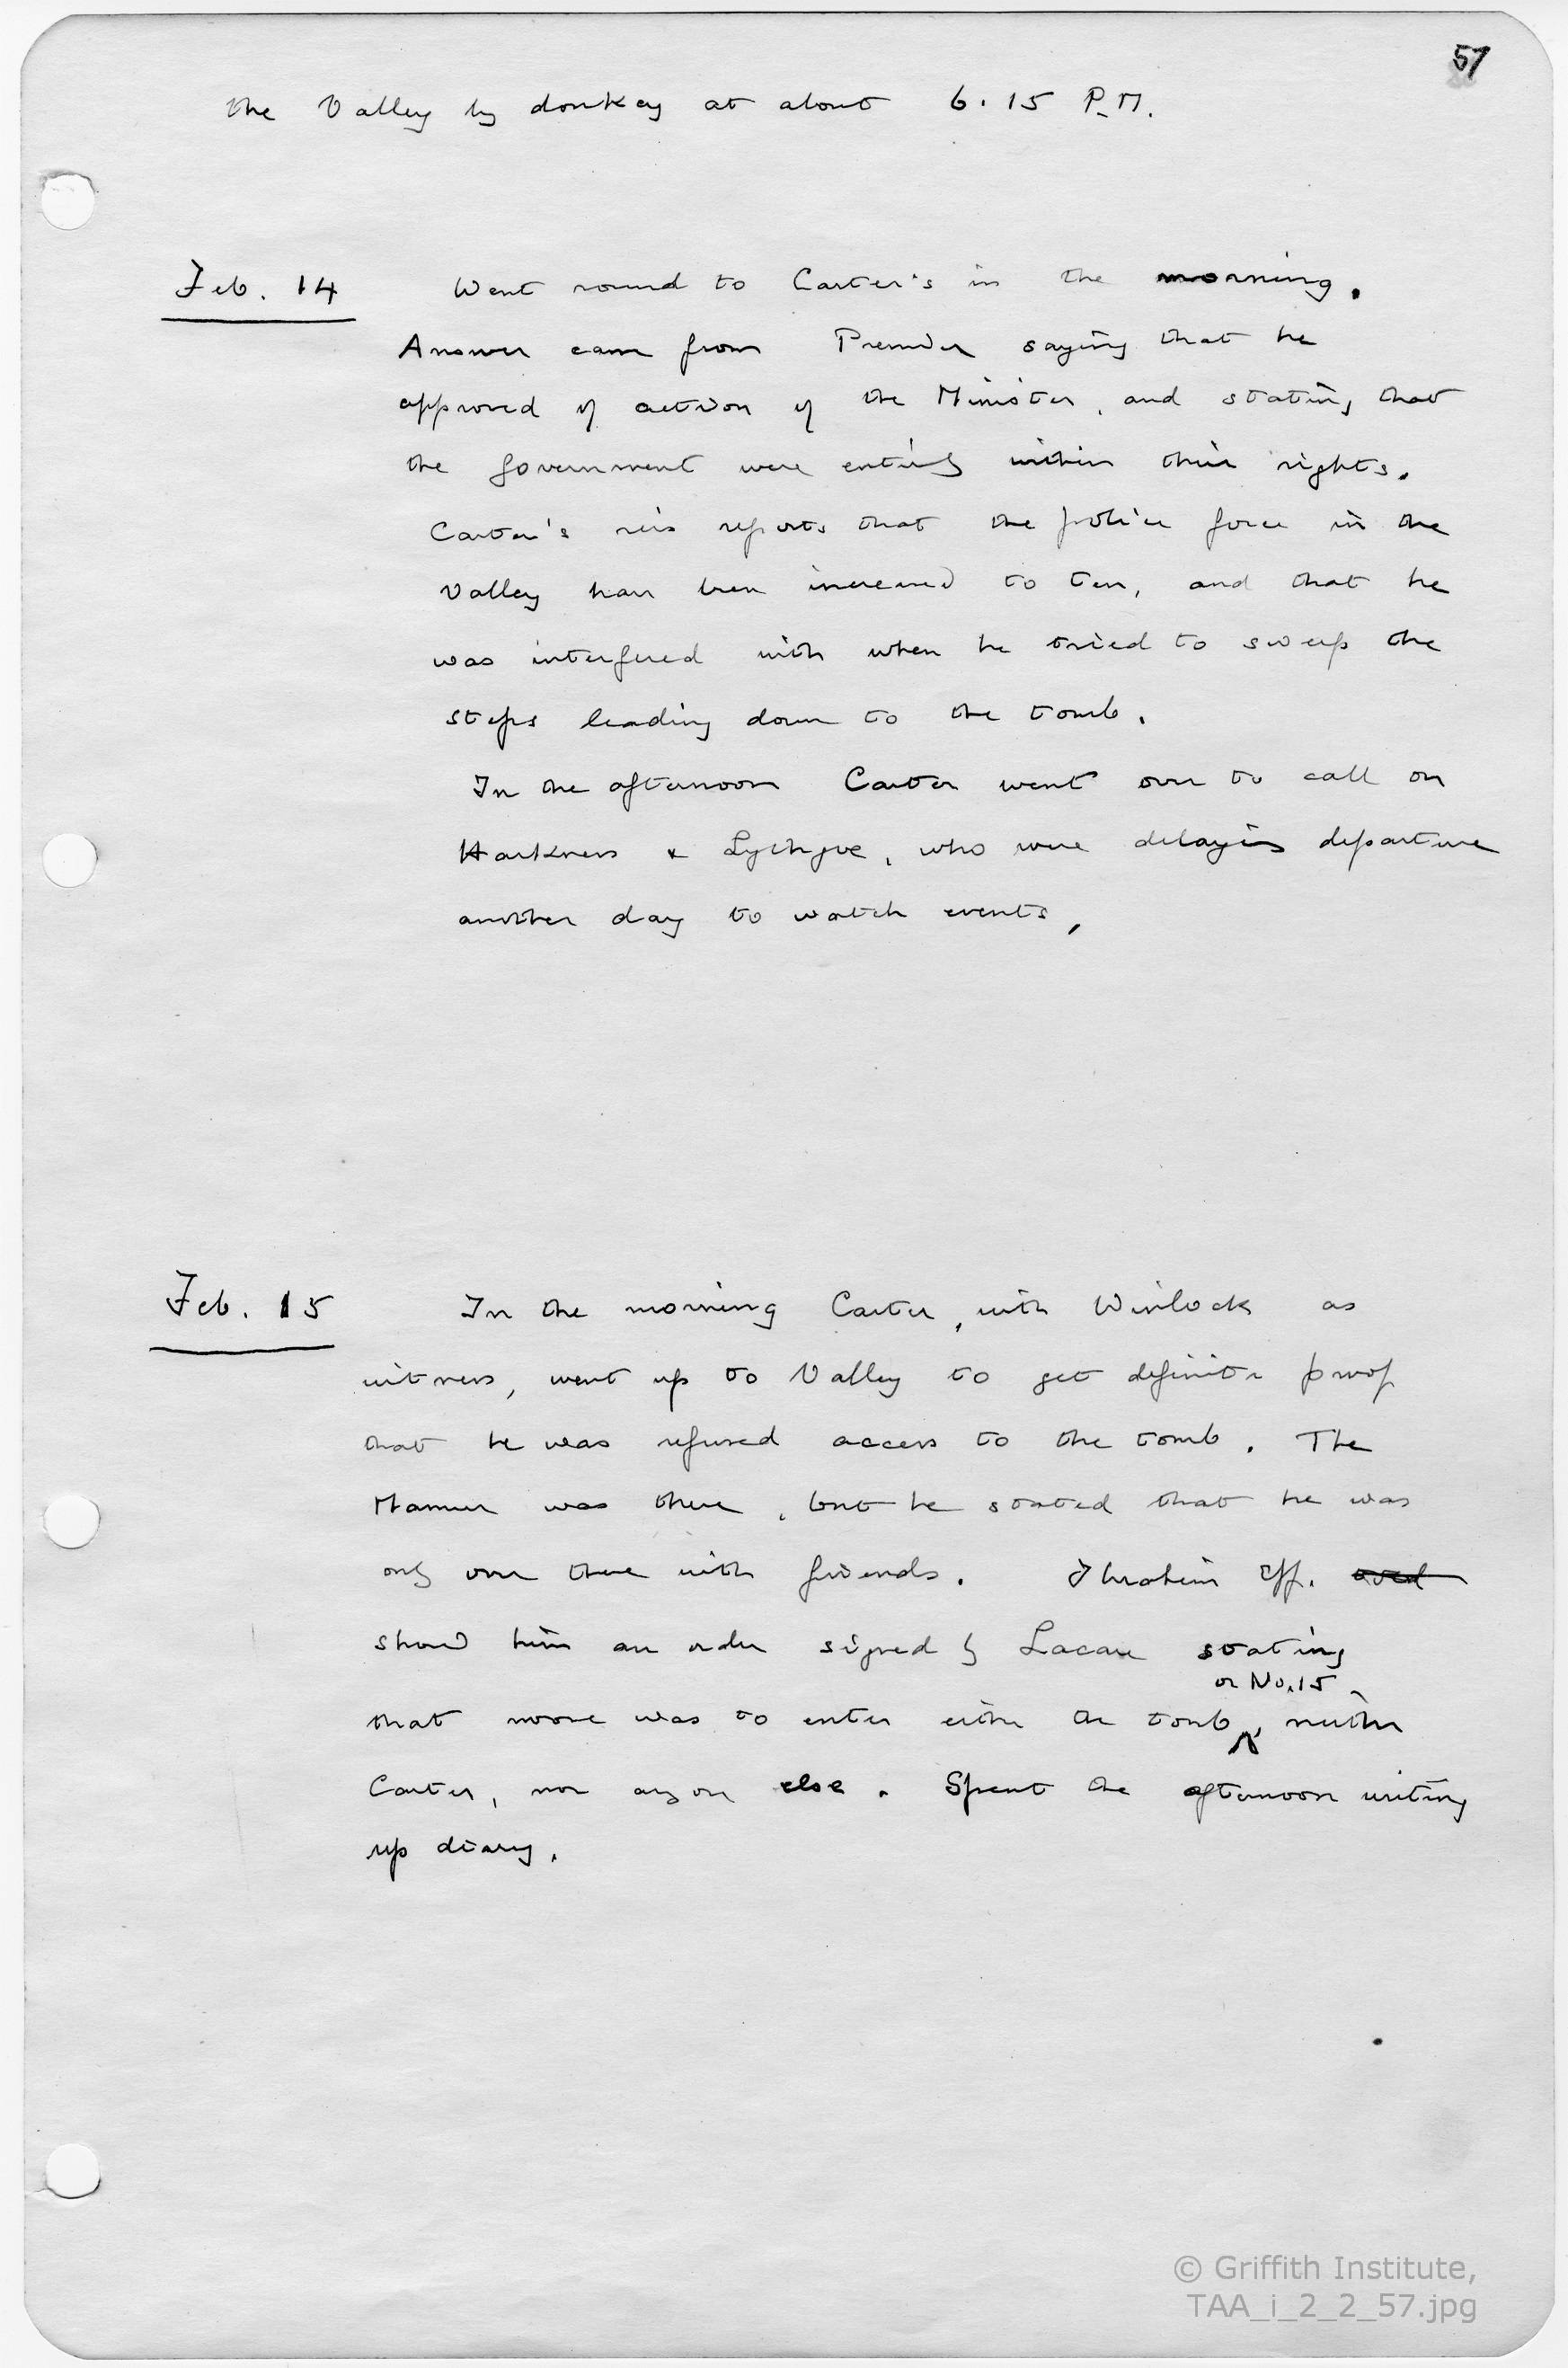 57
the Valley by donkey at about 6.15 P.M.
Feb. 14 Went round to Carter's in the morning.
Answer came from Premier saying that he
approved of action of the Minister, and stating that
the government were entirely within their rights.
Carter's reis reports that the police force in the
Valley has been increased to ten, and that he
was interfered with when he tried to sweep the
steps leading down to the tomb.
In the afternoon Carter went over to call on
Harkness & Lythgoe, who were delaying departure
another day to watch events.
Feb. 15 In the morning Carter, with Winlock as
witness, went up to Valley to get definite proof
that he was refused access to the tomb. The
Mamur was there, but he stated that he was
only over there with friends. Ibrahim Eff.
showed him an order signed by Lacau stating
or No. 15
that noone was to enter either the tomb, neither
Carter, nor anyone else. Spent the afternoon writing
up diary.
© Griffith Institute,
TAA_i_2_2_57.jpg